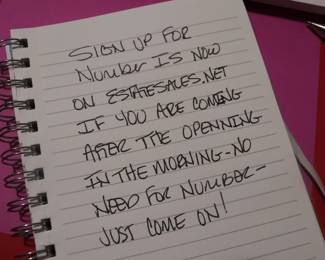 SIGN UP FOR
NUMBER IS NOW
ON ESTATESALES.NET
IF YOU ARE COMING
AFTER THE OPENNING
IN THE MORNING-NO
NEED FOR NUMBER-
JUST COME ON!